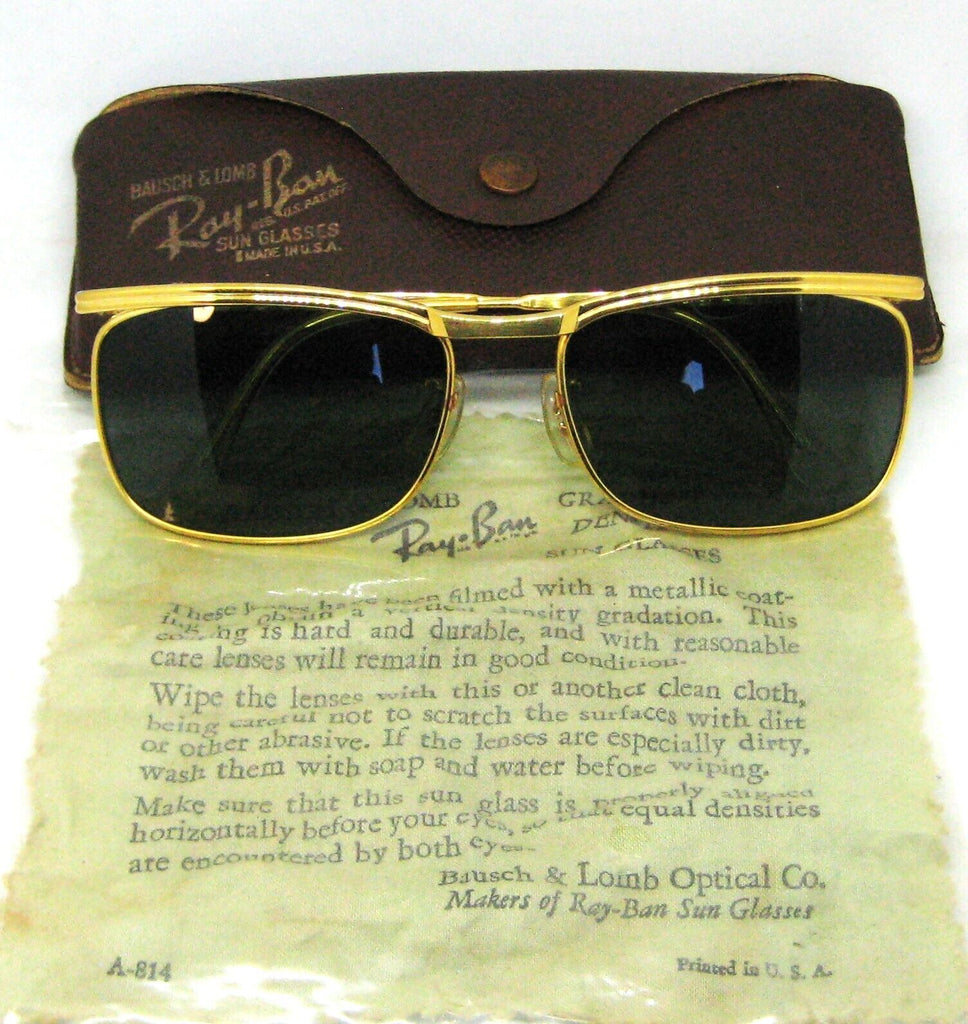 BAUSCH & LOMB
Ray-Ban
REG. U.S. PAT. OFF.
SUN GLASSES
MADE IN U.S.A.
OMB
Ray-Ban
SUN GLASSES
These lenses have been filmed with a metallic coat-
ing to obtain a vertical density gradation. This
coating is hard and durable, and with reasonable
care lenses will remain in good condition.
Wipe the lenses with this or another clean cloth,
being careful not to scratch the surfaces with dirt
or other abrasive. If the lenses are especially dirty,
wash them with soap and water before wiping.
Make sure that this sun glass is properly aligned
horizontally before your eyes, so that equal densities
are encountered by both eyes.
Bausch & Lomb Optical Co.
Makers of Ray-Ban Sun Glasses
A-814
Printed in U. S. A.